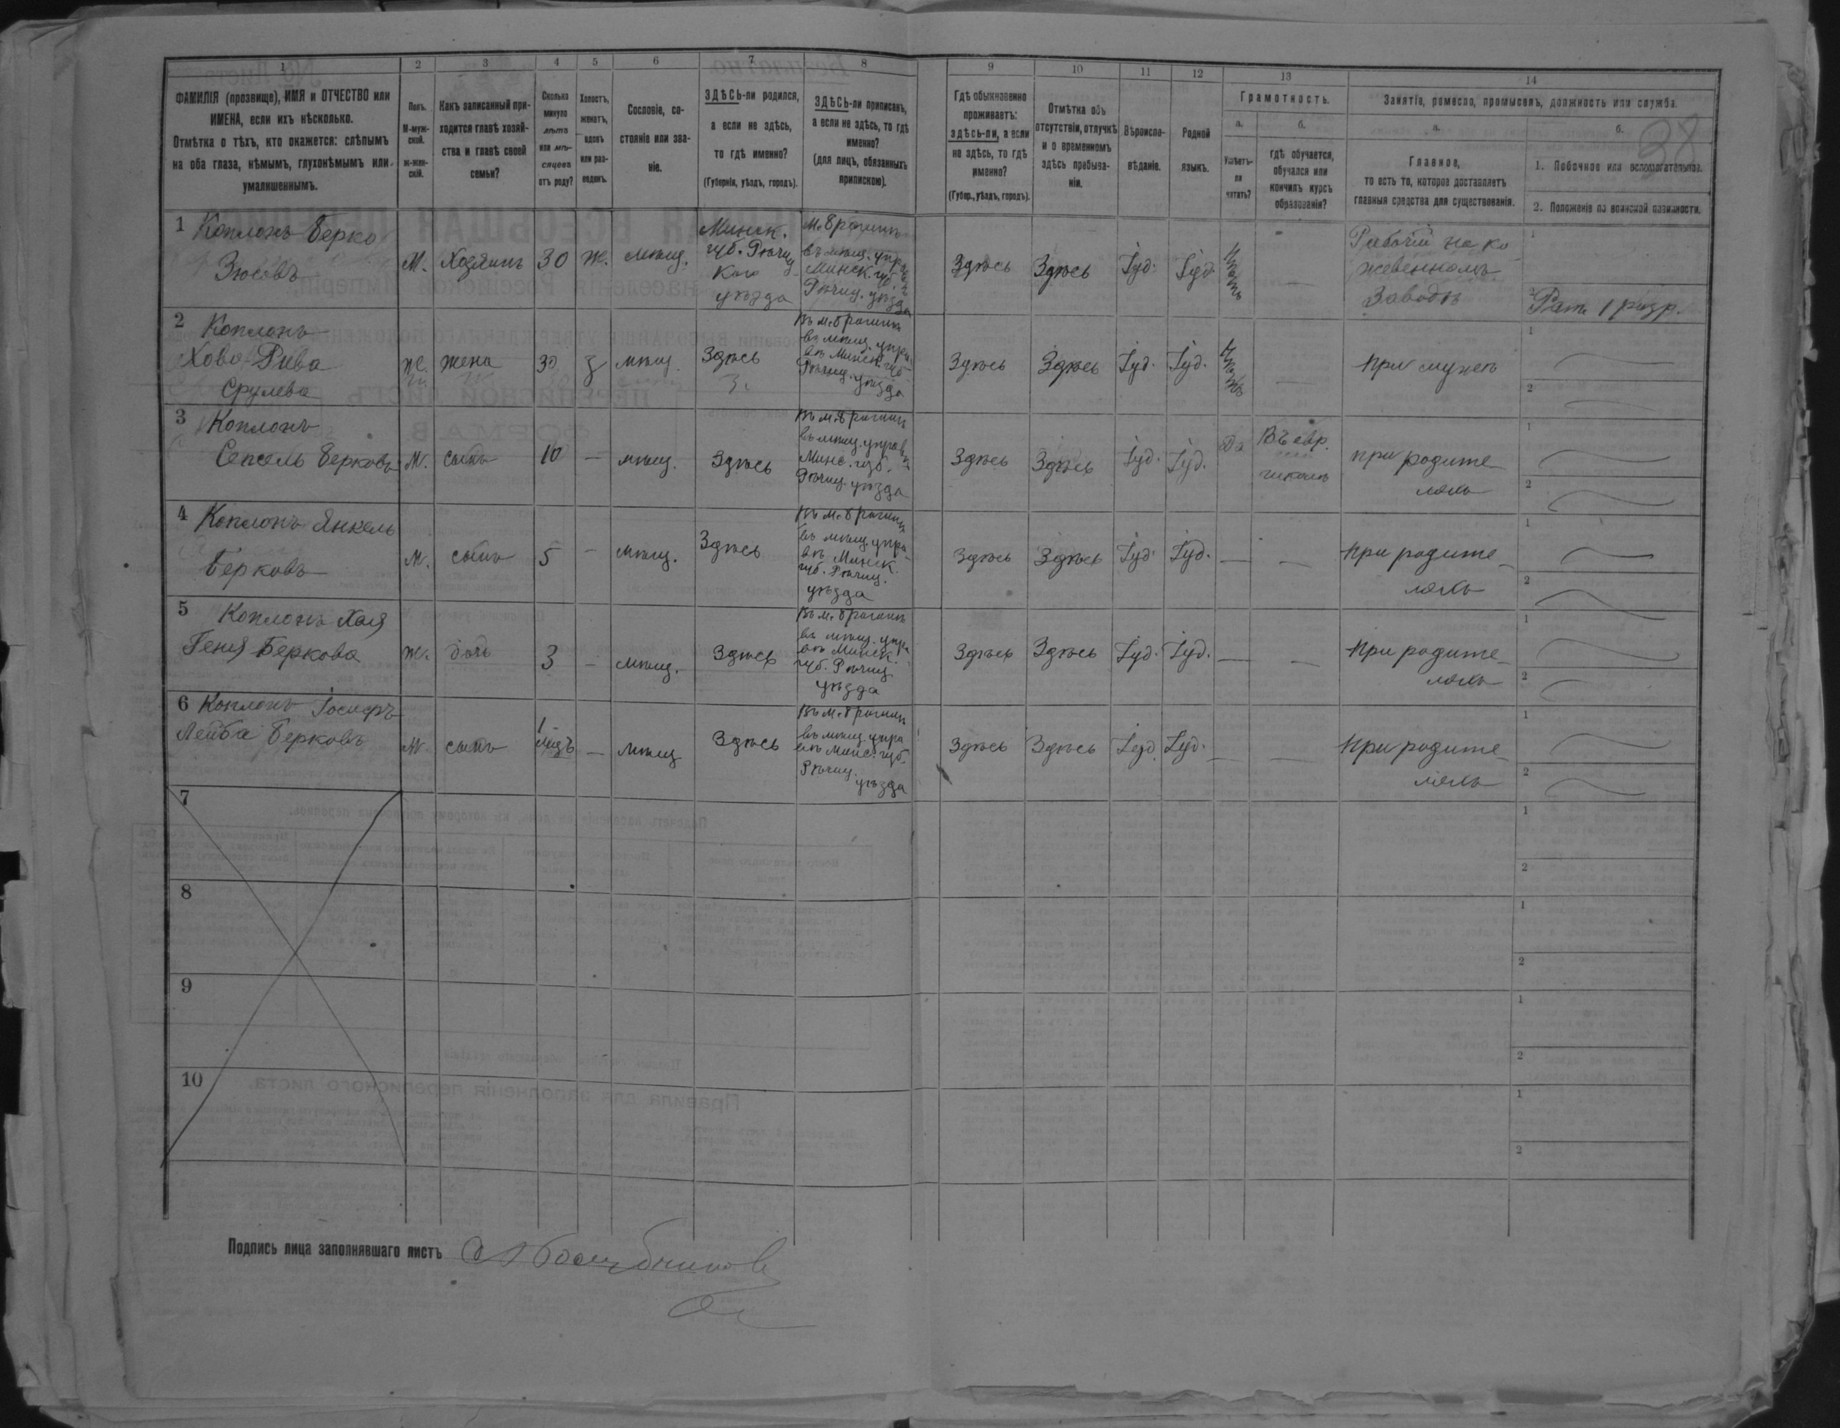 1 2 3 4 5 6 7 8 9 10 11 12 13 14
ФАМИЛІЯ (прозвище), ИМЯ и ОТЧЕСТВО или ИМЕНА, если ихъ нѣсколько.
Отмѣтка о тѣхъ, кто окажется: слѣпымъ на оба глаза, нѣмымъ, глухонѣмымъ или умалишеннымъ.
Полъ.
М-мужской.
Ж-женскій.
Какъ записанный приходится главѣ хозяйства и главѣ своей семьи?
Сколько минуло лѣтъ или мѣсяцевъ отъ роду?
Холостъ, женатъ, вдовъ или разведенъ.
Сословіе, состояніе или званіе.
ЗДѢСЬ-ли родился, а если не здѣсь, то гдѣ именно?
(Губернія, уѣздъ, городъ).
ЗДѢСЬ-ли приписанъ, а если не здѣсь, то гдѣ именно?
(для лицъ, обязанныхъ припискою).
Гдѣ обыкновенно проживаетъ: здѣсь-ли, а если не здѣсь, то гдѣ именно?
(Губер., уѣздъ, городъ).
Отмѣтка объ отсутствіи, отлучкѣ и о временномъ здѣсь пребываніи.
Вѣроисповѣданіе.
Родной языкъ.
Грамотность.
а.
Умѣетъ-ли читать?
б.
гдѣ обучается, обучался или кончилъ курсъ образованія?
Занятіе, ремесло, промыселъ, должность или служба.
а.
Главное,
то есть то, которое доставляетъ главныя средства для существованія.
б.
1. Побочное или вспомогательное.
2. Положеніе по воинской повинности.
38
1 Коплонъ Берко
Зюсовъ
М. Хозяинъ 30 Ж. мѣщ.
Минск.
губ. Рѣчиц
каго
уѣзда
М. Брагинъ
въ мѣщ. упра
Минск. губ.
Рѣчиц. уѣзда
Здѣсь Здѣсь Іуд. Іуд.
Рабочій на ко
жевенномъ
Заводѣ
Рат. 1 разр.
2 Коплонъ
Хова-Рива
Срулева
ж. жена 30 З мѣщ. Здѣсь
Въ м. Брагинъ
въ мѣщ. упра
вѣ Минск. губ.
Рѣчиц. уѣзда
Здѣсь Здѣсь Іуд. Іуд.
при мужѣ
3 Коплонъ
Берковъ
М. сынъ 10 — мѣщ. Здѣсь
Въ м. Брагинъ
въ мѣщ. управ
Минс. губ.
Рѣчиц. уѣзда
Здѣсь Здѣсь Іуд. Іуд. Да Въ евр.
при родите
ляхъ
4 Коплонъ Янкель
Берковъ
М. сынъ 5 — мѣщ. Здѣсь
Въ м. Брагинъ
въ мѣщ. упра
вѣ Минск.
губ. Рѣчиц.
уѣзда
Здѣсь Здѣсь Іуд. Іуд. — —
при родите
ляхъ
5 Коплонъ Хая
Геня Беркова
Ж. дочь 3 — мѣщ. Здѣсь
Въ м. Брагинъ
въ мѣщ. упра
вѣ Минск.
губ. Рѣчиц.
уѣзда
Здѣсь Здѣсь Іуд. Іуд. — —
при родите
ляхъ
6 Коплонъ Іосифъ
Лейба Берковъ
М. сынъ 1 — мѣщ Здѣсь
Въ м. Брагинъ
въ мѣщ. упра
вѣ Минс. губ.
Рѣчиц.
уѣзда
Здѣсь Здѣсь Іуд. Іуд. — —
при родите
ляхъ
7
8
9
10
Подпись лица заполнявшаго листъ